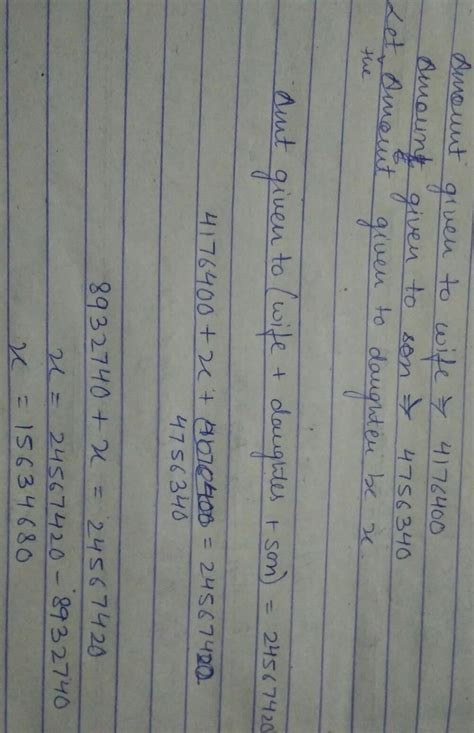 Amount given to wife ⇒ 4176400
Amount given to son ⇒ 4756340
Let the Amount given to daughter be x.
Amt given to (wife + daughter + son) = 24567420
4176400 + x + = 24567420
4756340
8932740 + x = 24567420
x = 24567420 - 8932740
x = 15634680